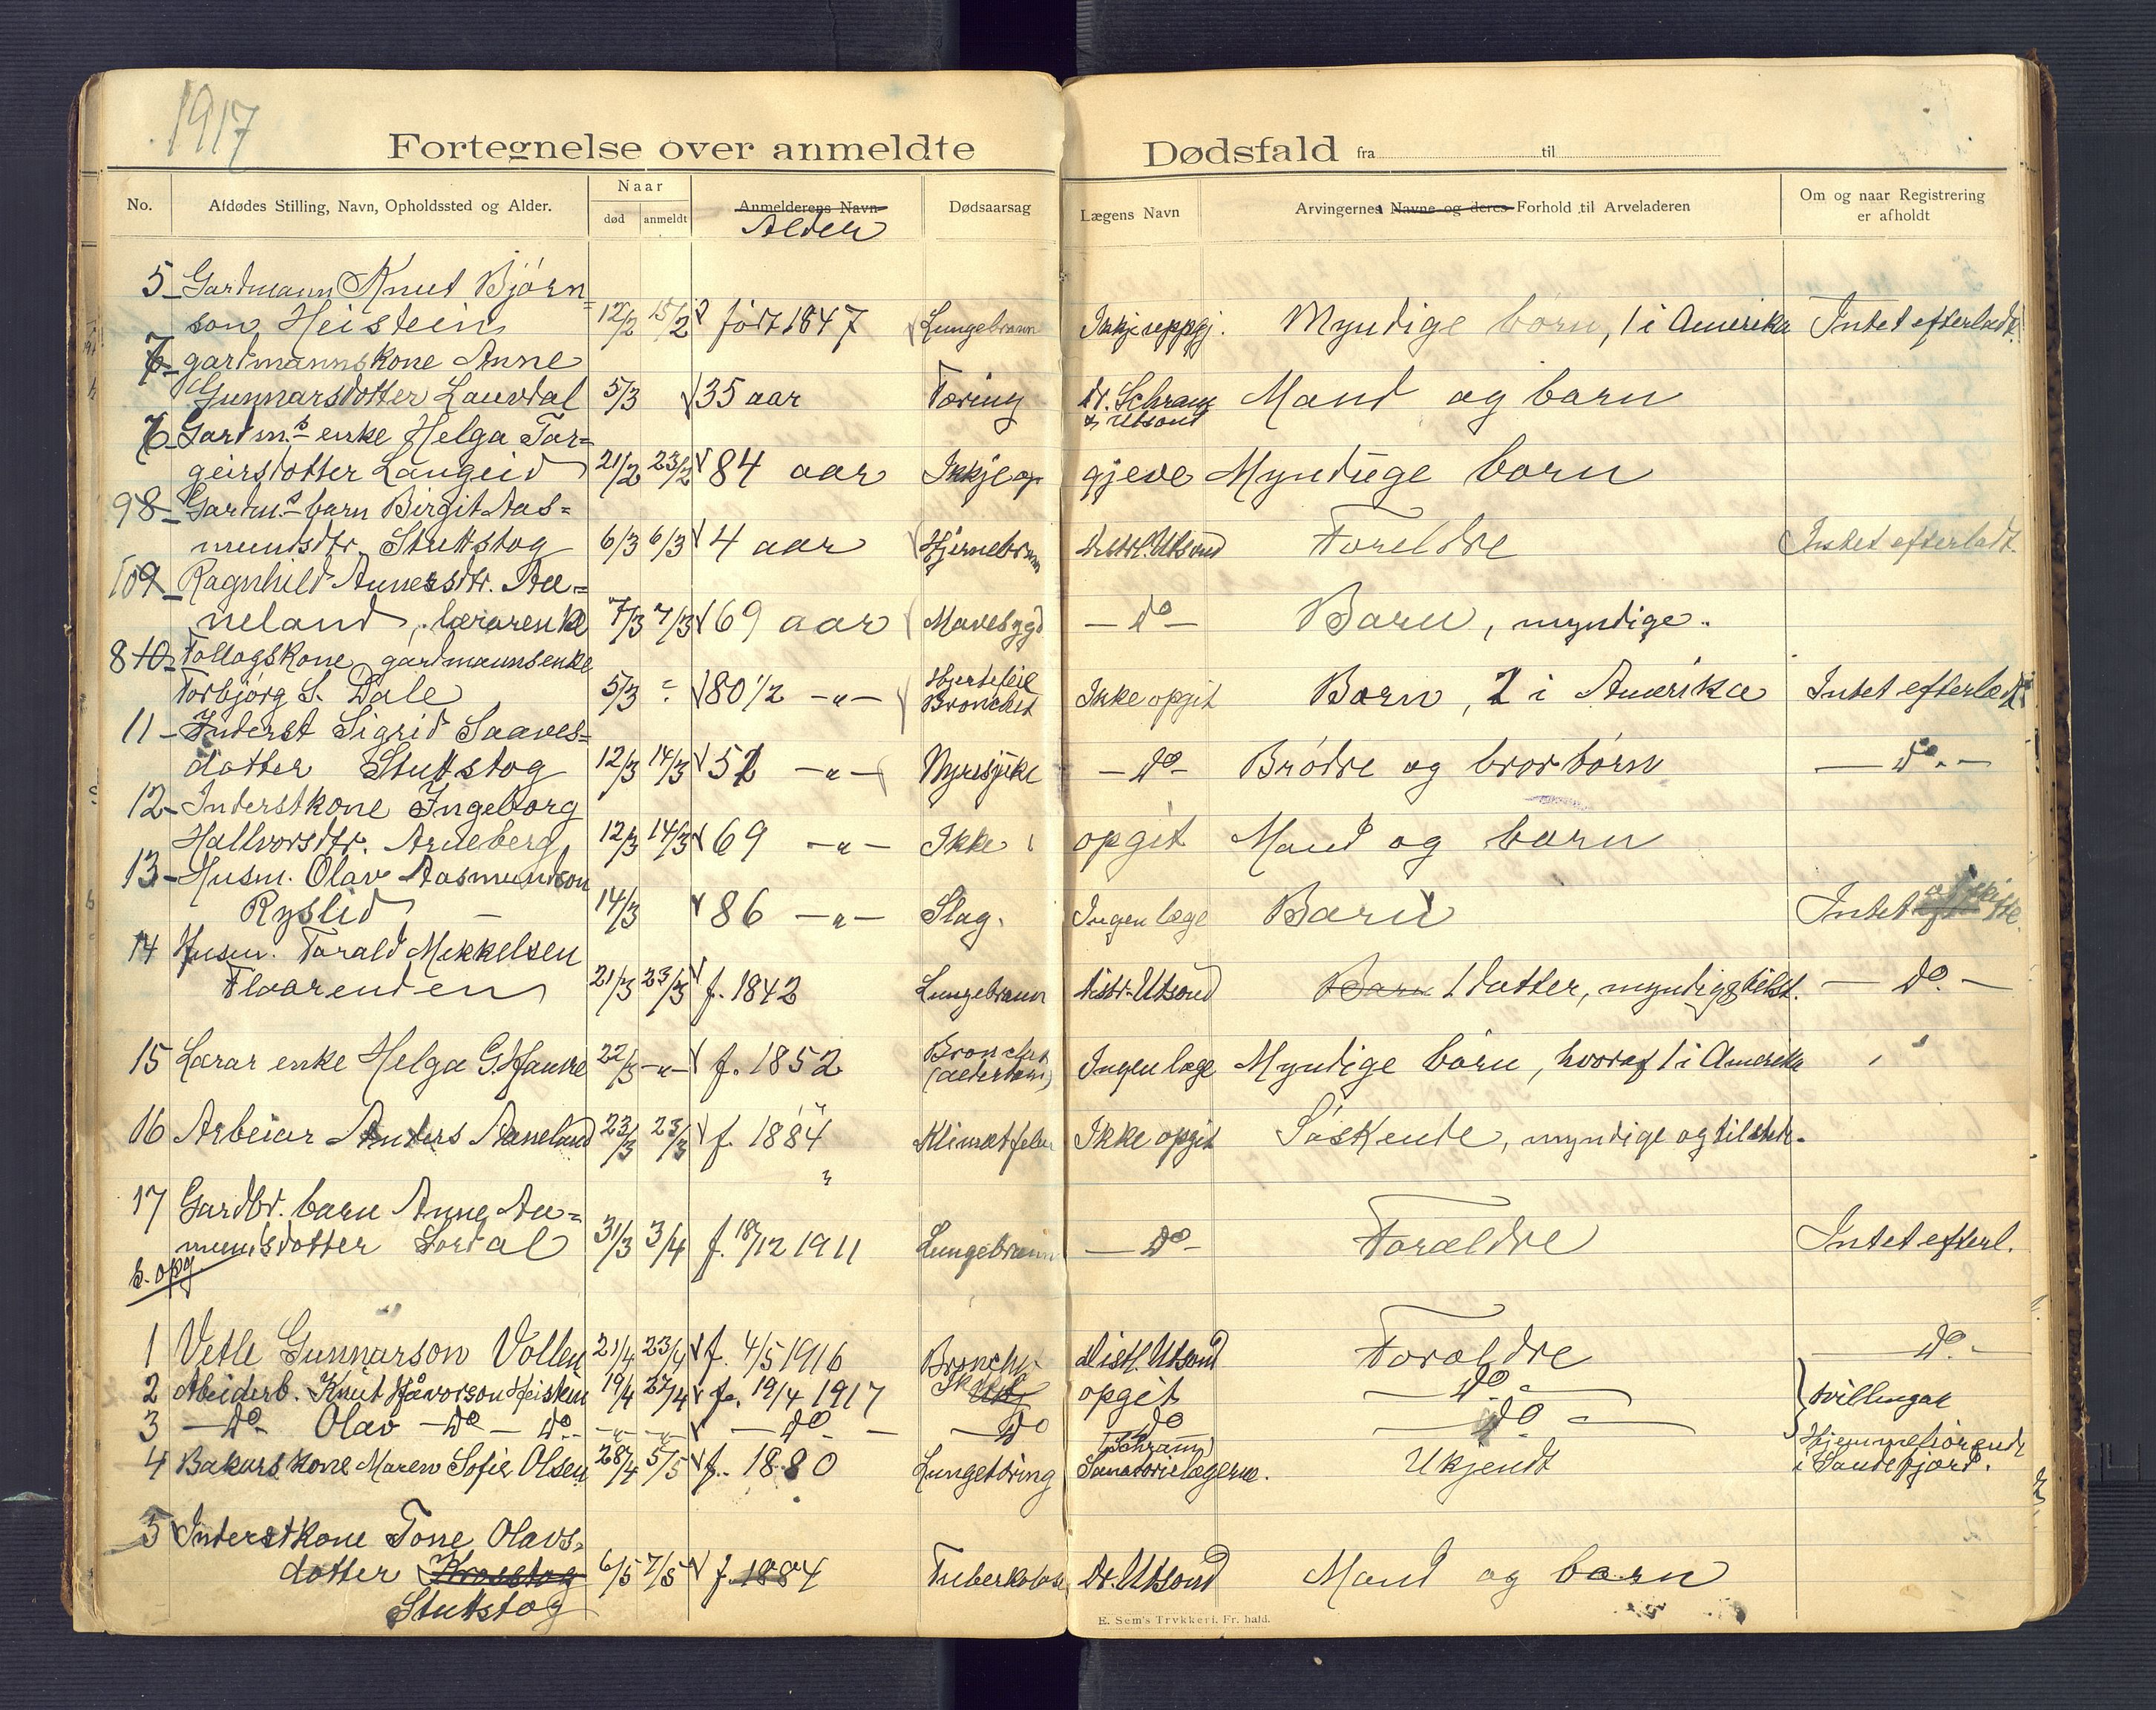 1917
Fortegnelse over anmeldte Dødsfald fra til
No. Afdødes Stilling, Navn, Opholdssted og Alder. Naar død anmeldt Anmelderens Navn Alder Dødsaarsag Lægens Navn Arvingernes Navne og deres Forhold til Arveladeren Om og naar Registrering er afholdt
5 Gardmann Knut Bjørn=
son Heistein 12/2 15/2 født 1847 Lungebrann Inkje uppgj. Myndige børn, 1 i Amerika Intet efterladt.
gardmannskone Anne
Gunnarsdotter Lauvdal 5/3 35 aar Tæring dr. Schram & Utsond Mand og barn
Gardm.s enke Helga Tar=
geirsdotter Langeid 21/2 23/2 84 aar Ikkje op gjeve Myndige born
98 Gardm.s barn Birgit Aas=
mundsdtr. Stuttstog 6/3 6/3 4 aar Hjernebrann distr. Utsond Foreldre Intet efterladt.
109 Ragnhild Annersdtr. Aa=
neland, lærarenke 7/3 7/3 69 aar Mavesygd - do - Barn, myndige.
8 10 Follogskone gardmannsenke
Torbjørg S. Dale 5/3 80 1/2 -"- Hjertefeil Bronchit Ikke opgit Barn, 2 i Amerika Intet efterladt
11 Inderst Sigrid Saaves=
dotter Stuttstog 12/3 14/3 52 -"- Nyresjuke - do - Brødre og brorbørn - do. -
12 Inderstkone Ingeborg
Hallvorsdtr. Arneberg 12/3 14/3 69 -"- Ikke opgit Mand og barn
13 Husm. Olav Aasmundson
Ryslid 14/3 86 -"- Slag. Ingen læge Barn Intet
14 Husm. Tarald Mikkelsen
Flaarenden 21/3 23/3 f. 1842 Lungebrann distr. Utsond Barn 1 datter, myndig & tilst. - do. -
15 Lærar enke Helga G. Hauvre 22/3 -"- f. 1852 Bronchit (alderdom) Ingen læge Myndige børn, hvoraf 1 i Amerika "
16 Arbeiar Anders Aaneland 23/3 23/3 f. 1884 Klimatfeber Ikke opgit Søskende, myndige og tilstede.
17 Gardbr. barn Anne Aa=
mundsdotter Lordal 31/3 3/4 f. 18/12 1911 Lungebrann - do - Forældre Intet efterl.
S. opg.
1 Vetle Gunnarson Vollen 21/4 23/4 f. 4/5 1916 Bronchit distr. Utsond Foreldre - do. -
2 Abeiderb. Knut Håvorson Heistein 19/4 27/4 f. 19/4 1917 Ikke opgit - do. - tvillingar
3 - do - Olav - do - do. -"- -"- - do - do do - do -
4 Bakars kone Maren Sofie Olsen 28/4 5/5 f. 1880 Lungetæring (Schram) Sanatorielægerne. Ukjendt Hjemmehørende i Sandefjord.
5 Inderstkone Tone Olavs=
dotter Krosstog 6/5 7/5 f. 1884 Tuberkulose Dr. Utsond Mand og barn
Stuttstog
E. Sem's Trykkeri. Fr. hald.